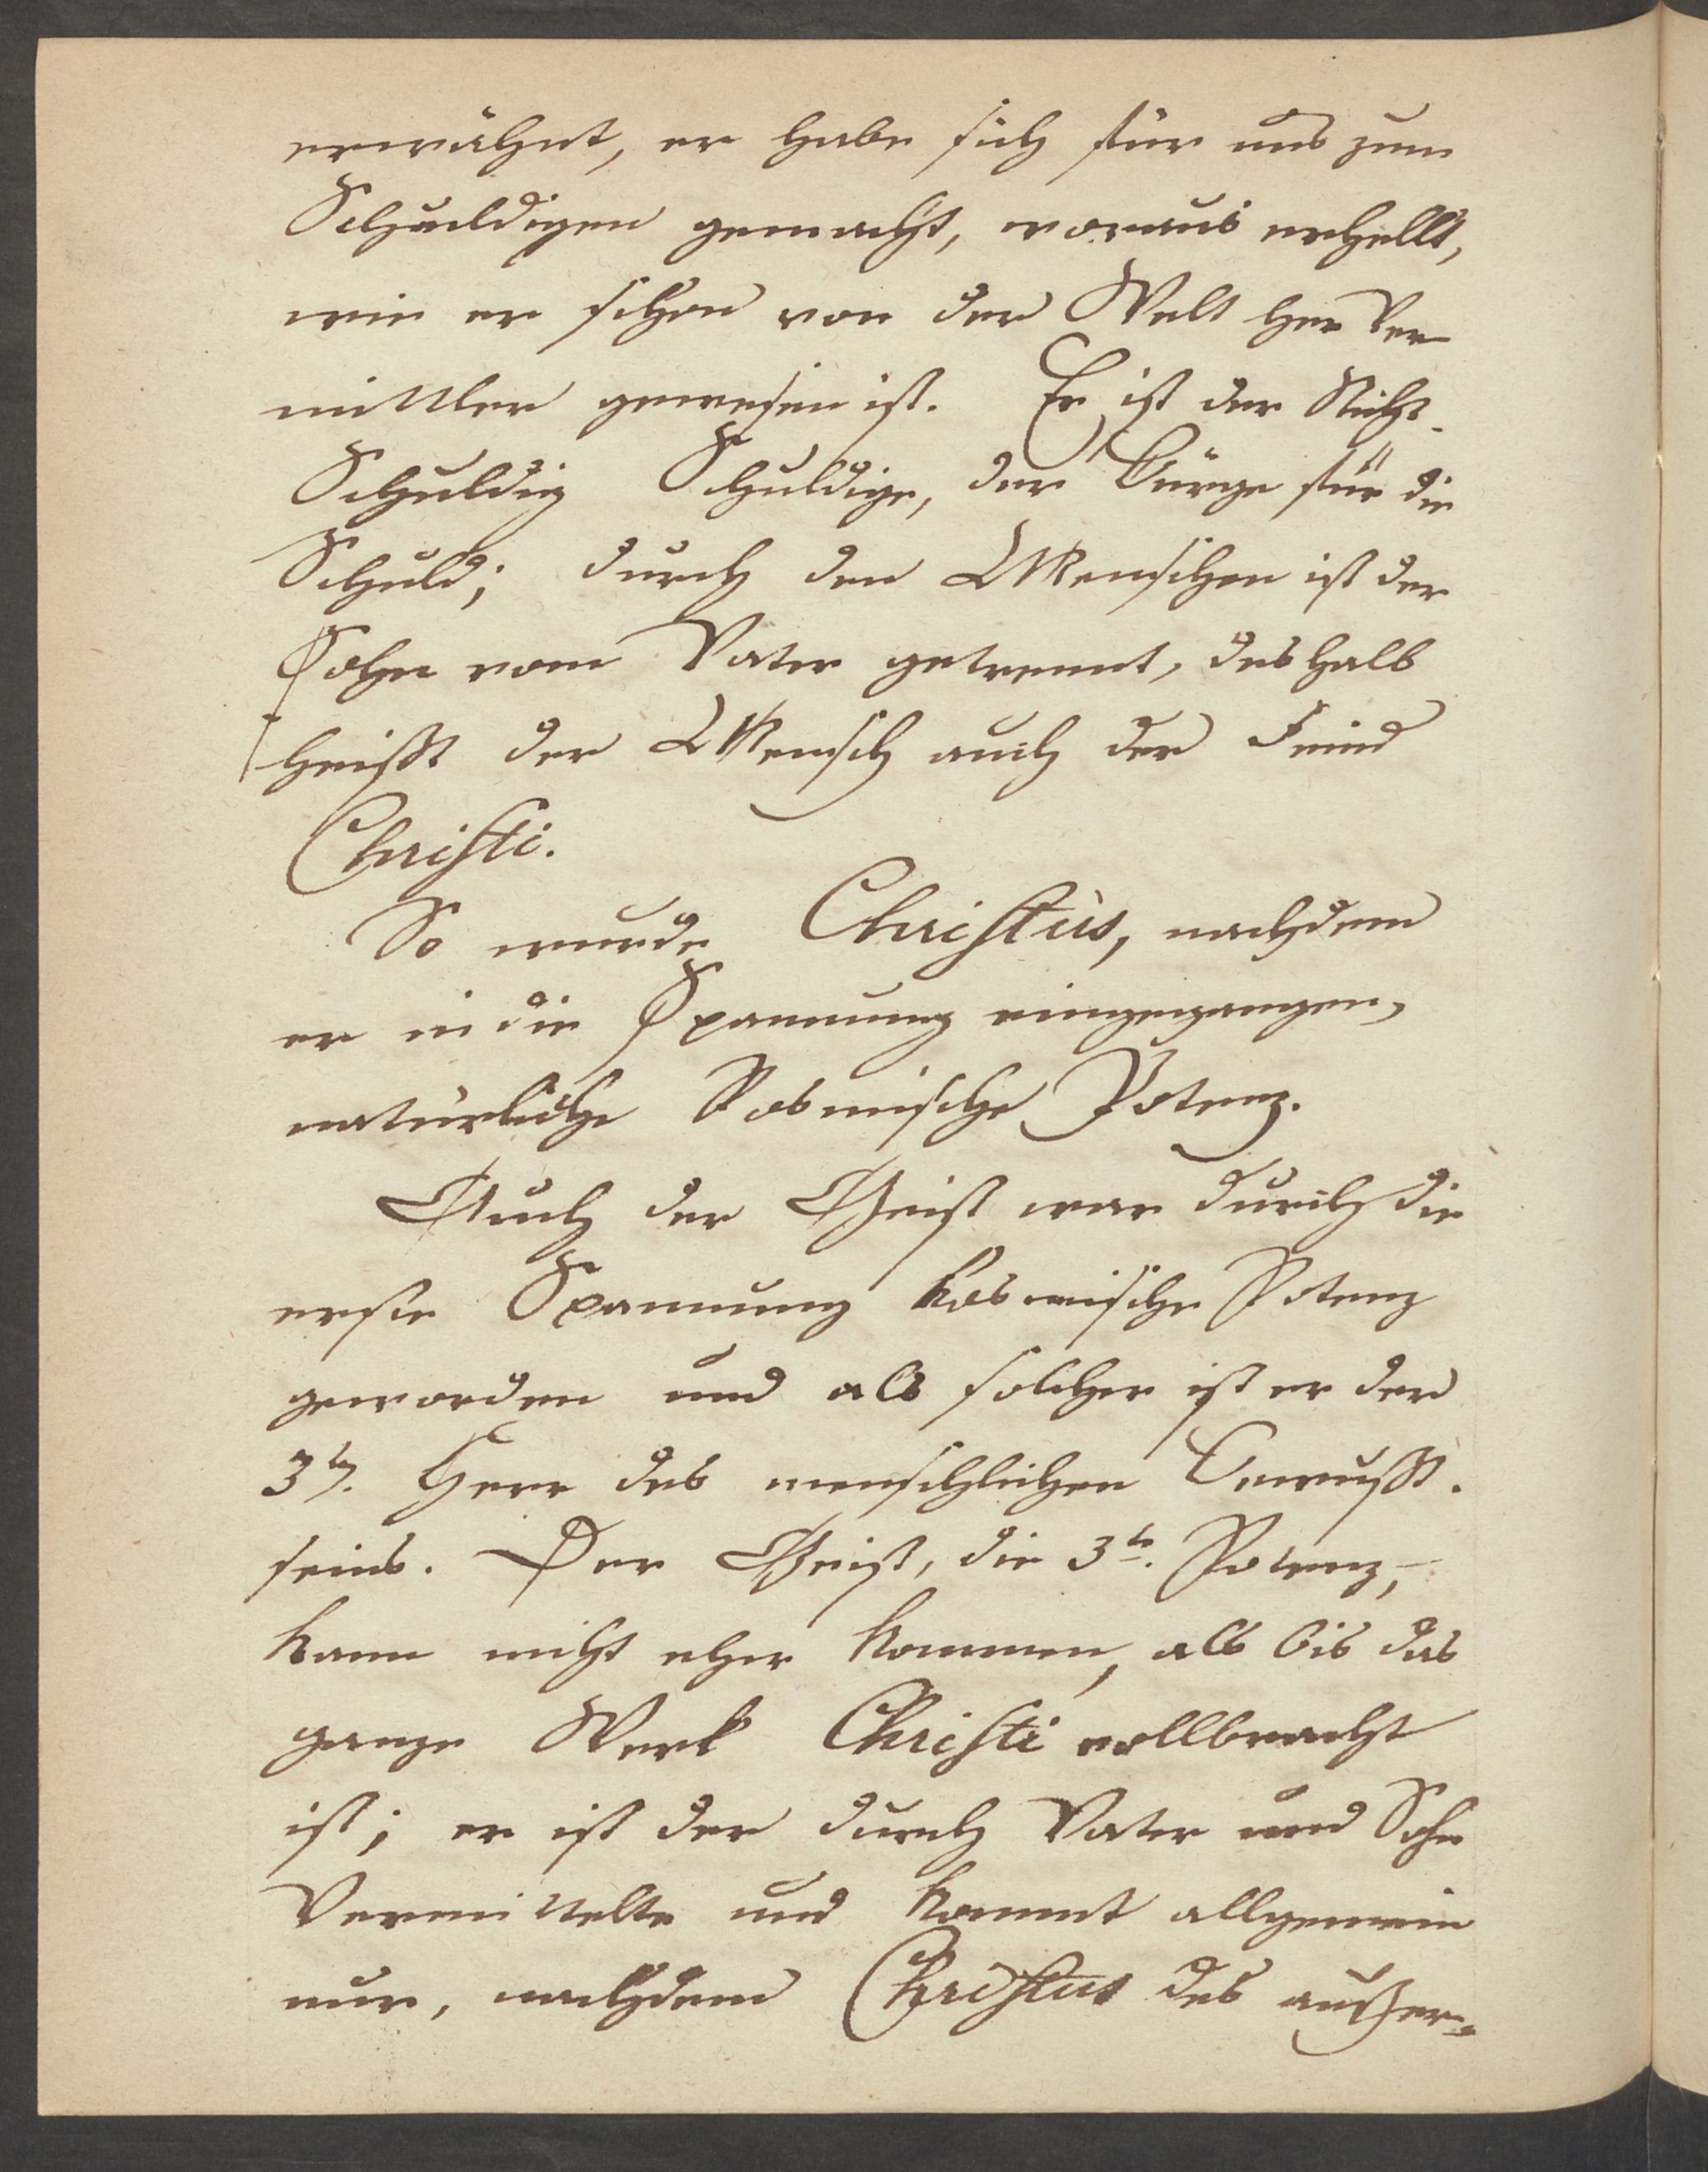 erwähnt, er habe sich für uns zum
Schuldigen gemacht, woraus erhellt,
wie er schon von der Welt her Ver-
mittler gewesen ist. Er ist der Nicht-
Schuldig Schuldige, der Bürge für die
Schuld; durch den Menschen ist der
Sohn vom Vater getrennt, deshalb
heißt der Mensch auch der Feind
Christi.
So wurde Christus, nachdem
er in die Spannung eingegangen,
natürliche kosmische Potenz.
Auch der Geist war durch die
erste Spannung kosmische Potenz
geworden und als solcher ist er der
3te. Herr des menschlichen Bewußt-
seins. Der Geist, die 3te. Potenz,
kann nicht eher kommen, als bis das
ganze Werk Christi vollbracht
ist; er ist der durch Vater und Sohn
Vermittelte und kommt allgemein
nur, nachdem Christus des außer-